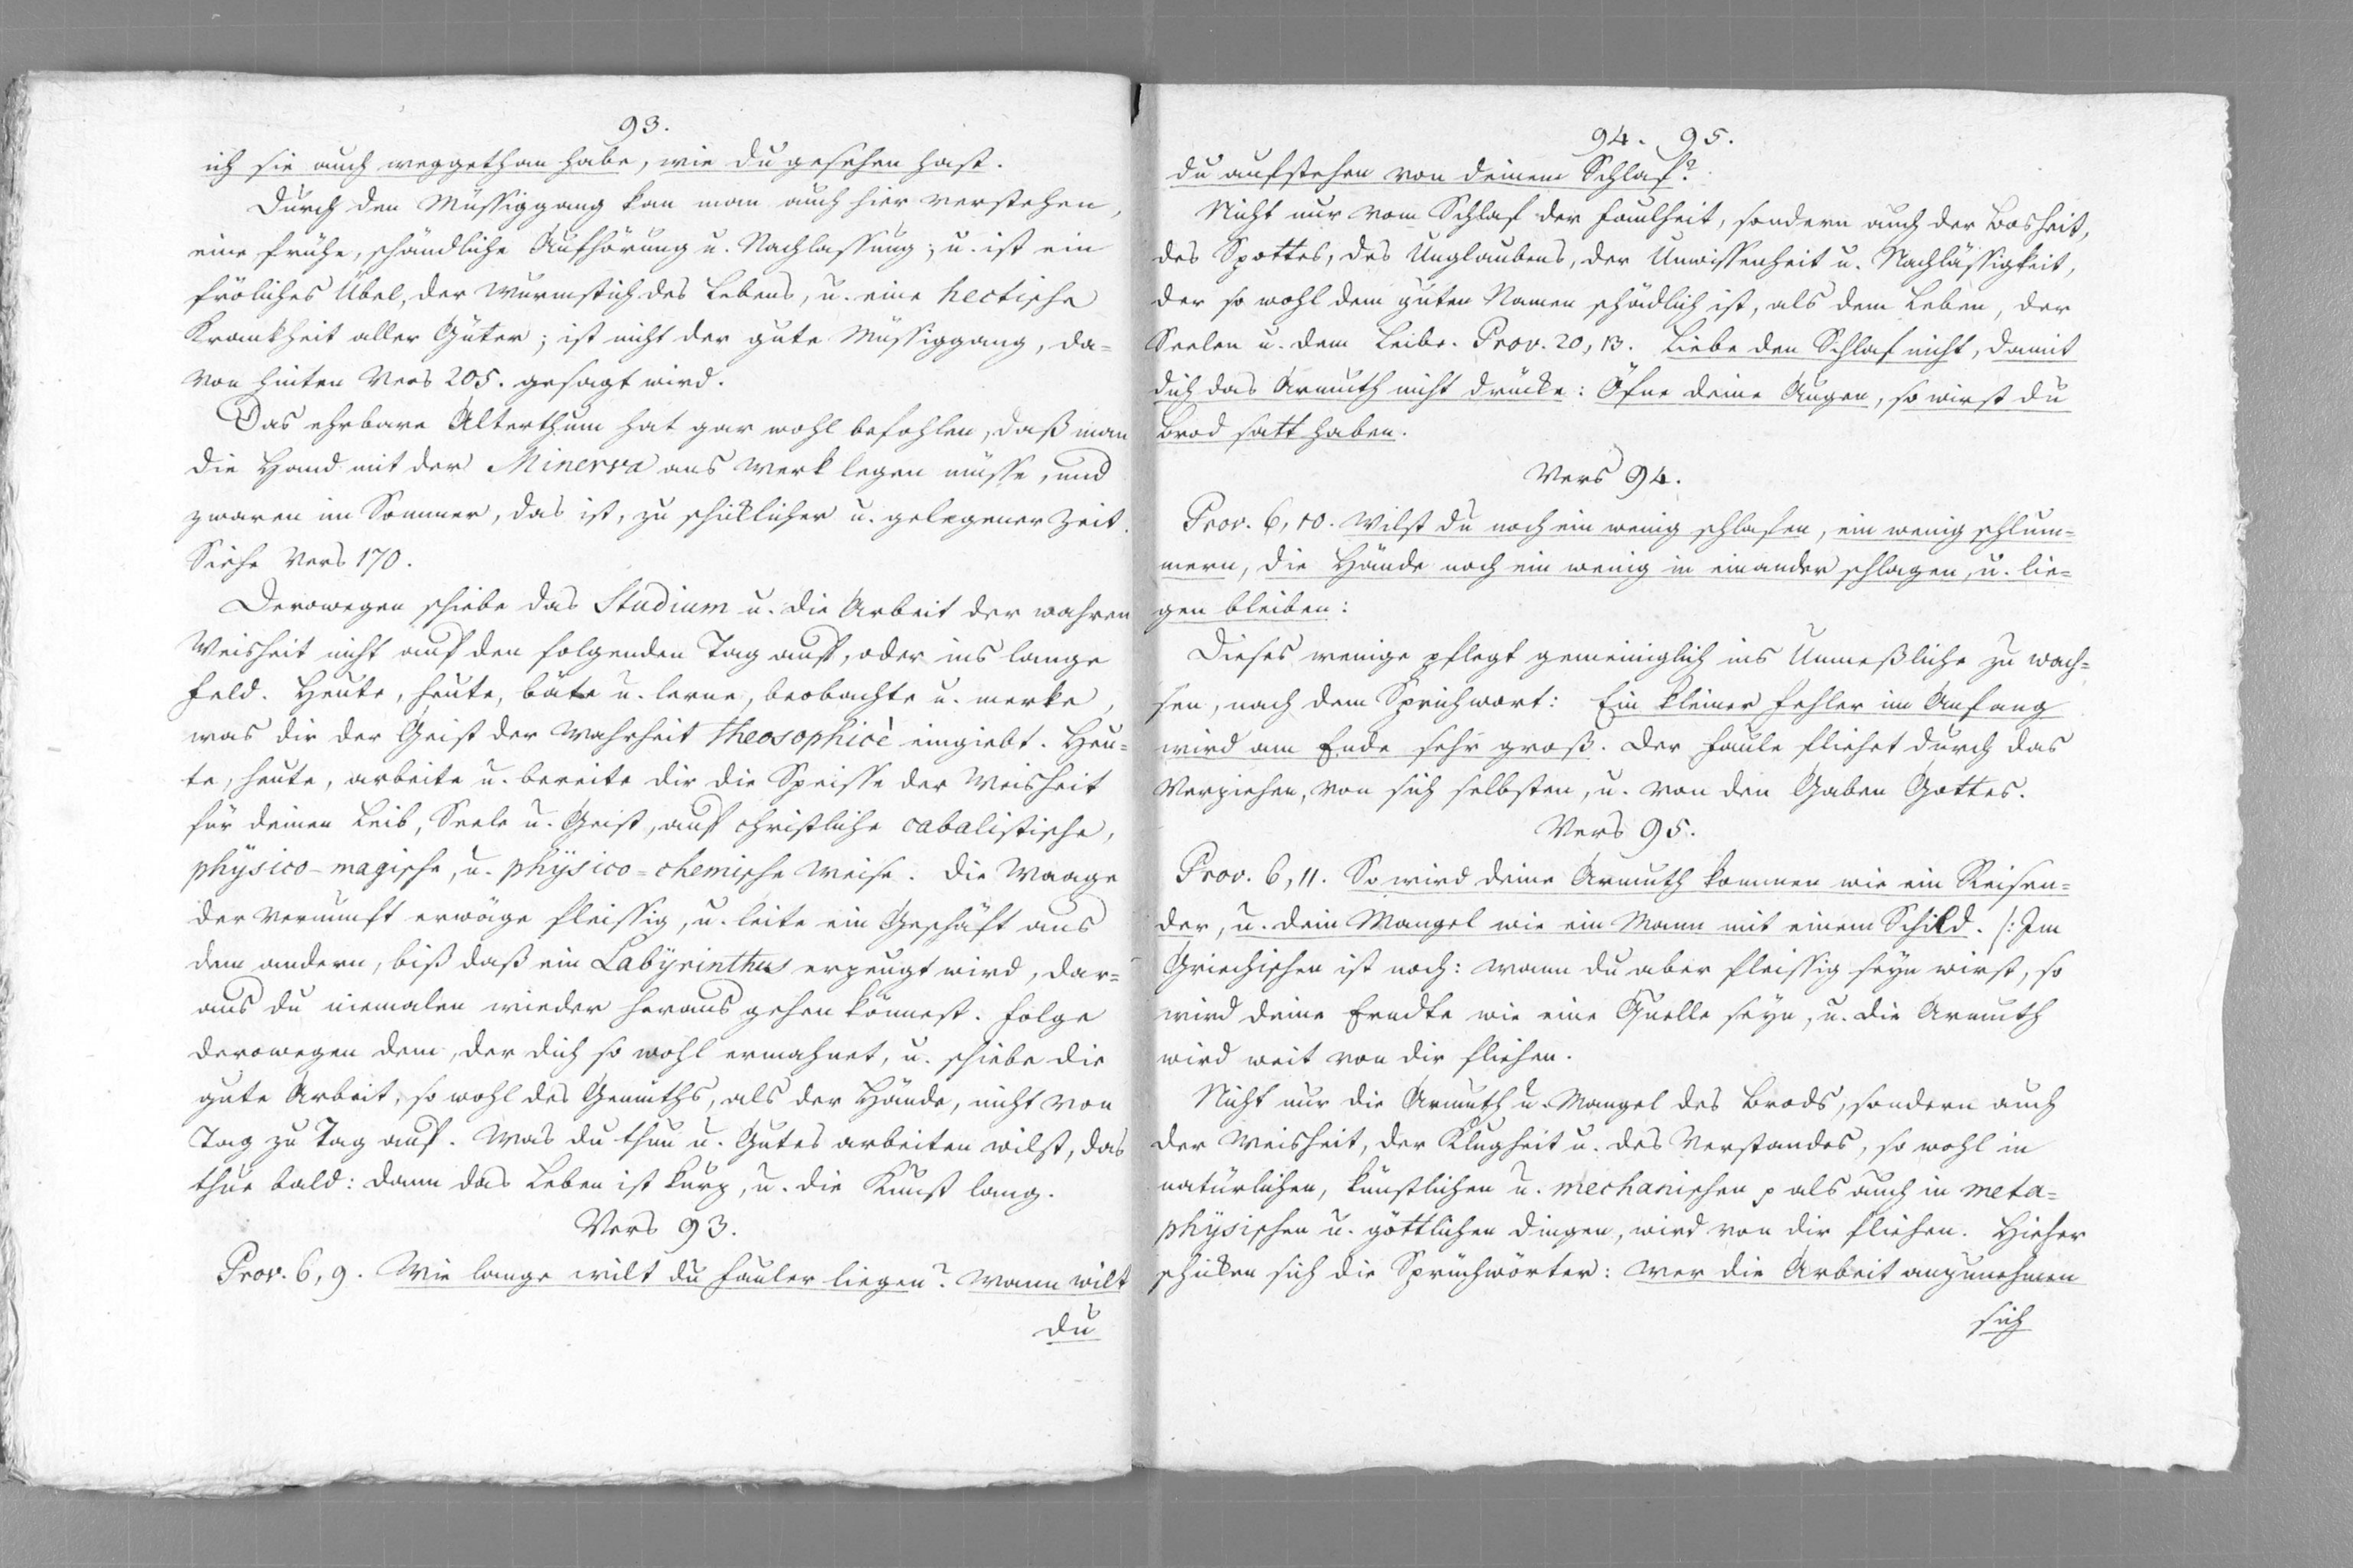 93.
ich sie auch weggethan habe, wie du gesehen hast.
Durch den Müssiggang kan man auch hier verstehen,
eine frühe, schändliche Aufhörung u. Nachlassung; u. ist ein
fröliches Übel, der Wurmstich des Lebens, u. eine hectische
Krankheit aller Güter; ist nicht der gute Müssiggang, da=
von hinten Vers 205. gesagt wird.
Das ehrbare Alterthum hat gar wohl befohlen, daß man
die Hand mit der Minerva ans Werk legen müsse, und
zwaren im Sommer, das ist, zu schicklicher u. gelegener Zeit.
Siehe Vers 170.
Derowegen schiebe das Studium u. die Arbeit der wahren
Weisheit nicht auf den folgenden Tag auf, oder ins lange
Feld. Heute, heute, bäte u. lerne, beobachte u. merke,
was dir der Geist der Wahrheit theosophicè eingiebt. Heu=
te, heute, arbeite u. bereite dir die Speisse der Weisheit
für deinen Leib, Seele u. Geist, auf christliche cabalistische,
physico-magische, u. physico=chemische Weise. Die Waage
der Vernunft erwäge fleissig, u. leite ein Geschäft aus
dem andern, biß daß ein Labyrinthus erzeugt wird, dar=
aus du niemalen wieder heraus gehen könnest. Folge
derowegen dem, der dich so wohl ermahnet, u. schiebe die
gute Arbeit, so wohl des Gemüths, als der Hände, nicht von
Tag zu Tag auf. Was du thun u. Gutes arbeiten wilst, das
thue bald: dann das Leben ist kurz, u. die Kunst lang.
Vers 93.
Prov. 6, 9. Wie lange wilt du Fauler liegen? Wann wilt
du
94. 95.
du aufstehen von deinem Schlaf?
Nicht nur vom Schlaf der Faulheit, sondern auch der Bosheit,
des Spottes, des Unglaubens, der Unwissenheit u. Nachlässigkeit,
der so wohl dem guten Namen schädlich ist, als dem Leben, der
Seelen u. dem Leibe. Prov. 20, 13. Liebe den Schlaf nicht, damit
dich das Armuth nicht drücke: Öfne deine Augen, so wirst du
Brod satt haben.
Vers 94.
Prov. 6, 10. Wilst du noch ein wenig schlafen, ein wenig schlum=
mern, die Hände noch ein wenig in einander schlagen, u. lie=
gen bleiben:
Dieses wenige pflegt gemeiniglich ins Unmeßliche zu wach=
sen, nach dem Sprichwort: Ein kleiner Fehler im Anfang
wird am Ende sehr groß. Der Faule fliehet durch das
Verziehen, von sich selbsten, u. von den Gaben Gottes.
Vers 95.
Prov. 6, 11. So wird deine Armuth kommen wie ein Reisen=
der, u. dein Mangel wie ein Mann mit einem Schild. /: Im
Griechischen ist noch: Wann du aber fleissig seyn wirst, so
wird deine Erndte wie eine Quelle seyn, u. die Armuth
wird weit von dir fliehen.
Nicht nur die Armuth u. Mangel des Brods, sondern auch
der Weisheit, der Klugheit u. des Verstandes, so wohl in
natürlichen, künstlichen u. mechanischen p als auch in meta=
physischen u. göttlichen Dingen, wird von dir fliehen. Hieher
schicken sich die Sprüchwörter: Wer die Arbeit anzunehmen
sich